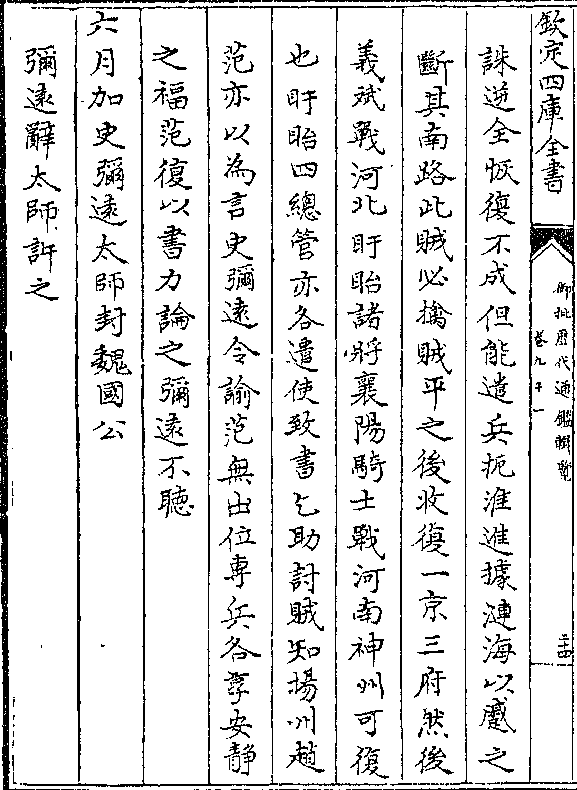 欽定四庫全書
御批歷代通鑑輯覽
卷九十一
二十四
誅逆全恢復不成但能遣兵扼淮進據漣海以蹙之
斷其南路此賊必擒賊平之後收復一京三府然後
義斌戰河北盱眙諸將襄陽騎士戰河南神州可復
也盱眙四總管亦各遣使致書乞助討賊知揚州趙
范亦以為言史彌遠令諭范無出位専兵各享安靜
之福范復以書力論之彌遠不聽
六月加史彌遠太師封魏國公
彌遠辭太師許之